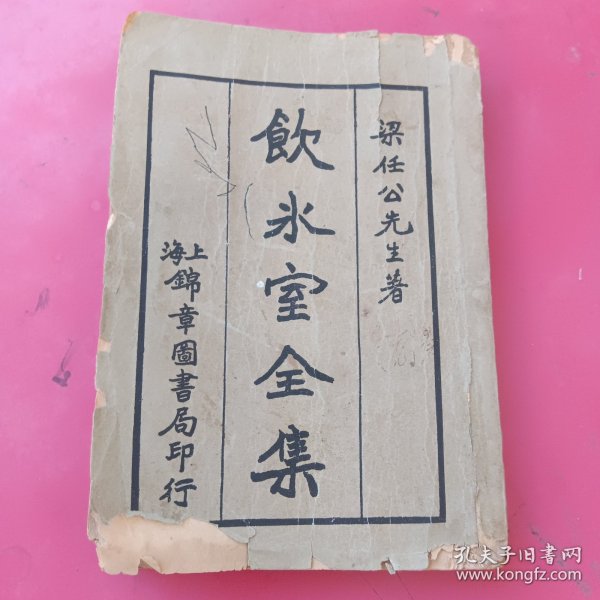 梁任公先生著
飲冰室全集
上海錦章圖書局印行
孔夫子旧书网
www.kongfz.com